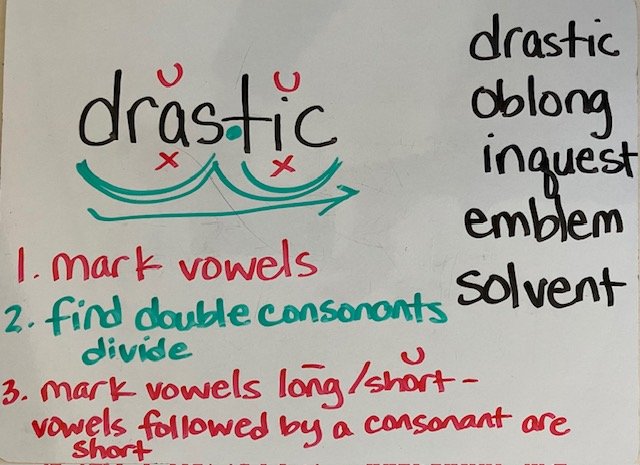 dras.tic
x x
1. mark vowels
2. find double consonants
divide
3. mark vowels long/short -
vowels followed by a consonant are
short
drastic
oblong
inquest
emblem
solvent